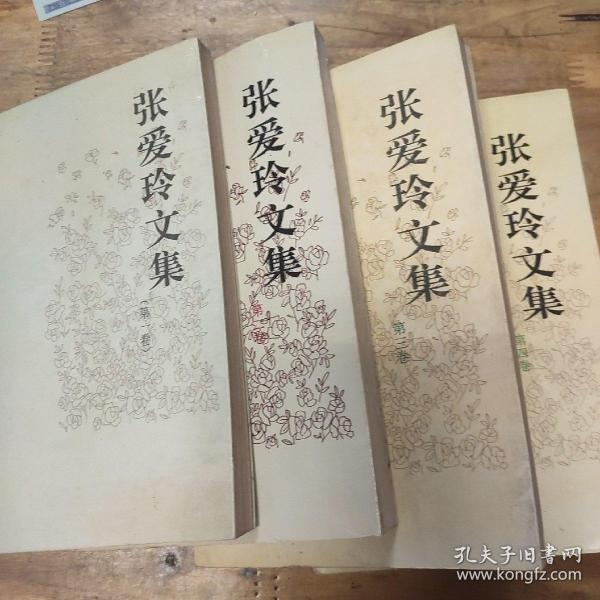 张爱玲文集
（第一卷）
张爱玲文集
第二卷
张爱玲文集
第三卷
张爱玲文集
第四卷
孔夫子旧书网
www.kongfz.com